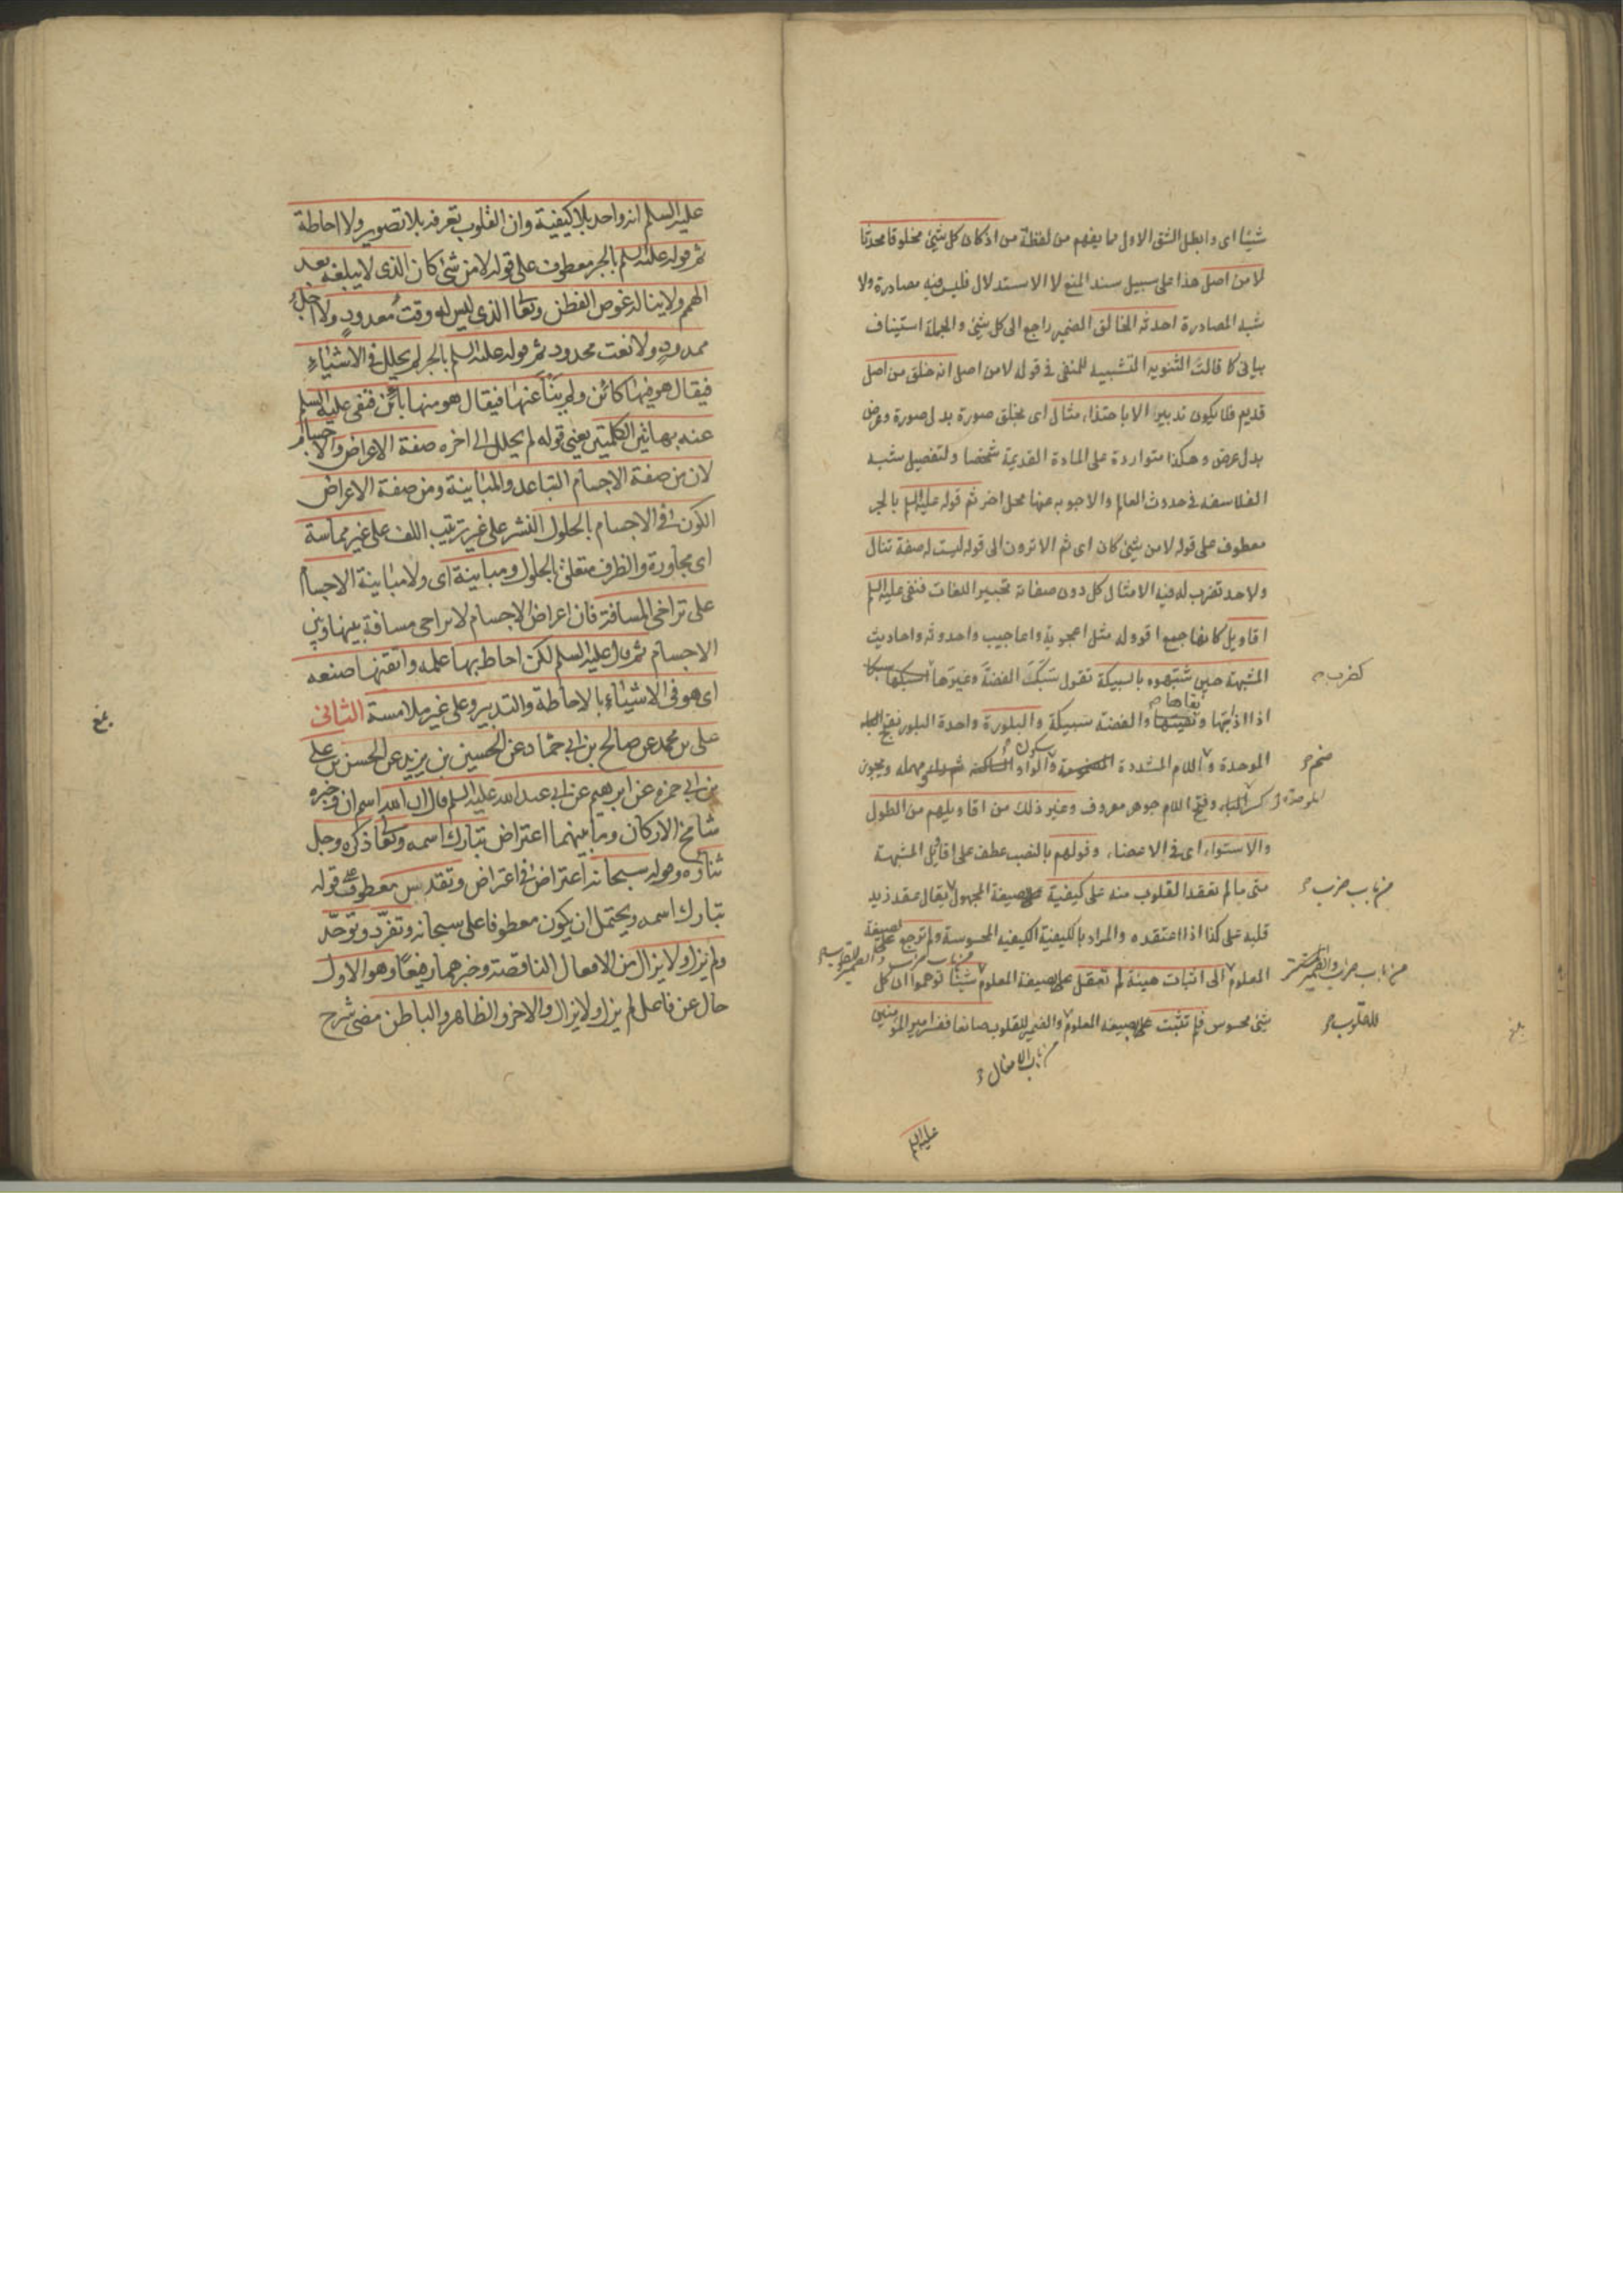 شيئا اى وابطل الشق الاول مما يفهم من لفظة من اذ كان كل شئ مخلوقا محدثا
لا من اصل هذا على سبيل سند المنع لا الاستدلال فليس فيه مصادرة ولا
شبه المصادرة احدثه الخالق الضمير راجع الى كل شئ والجملة استيناف
بيانى كما قالت الثنوية التشبيه للنفى فى قوله لا من اصل انه خلق من اصل
قديم فلا يكون تدبير الا باحتذاء مثال اى بخلق صورة بدل صورة وعرض
بدل عرض وهكذا متواردة على المادة القديمة شخصا ولتفصيل شبه
الفلاسفه فى حدوث العالم والاجوبه عنها محل اخر ثم قوله عليه السلم بالجر
معطوف على قوله لا من شئ كان اى ثم الا ترون الى قوله ليست له صفة تنال
ولا حد تضرب له فيه الامثال كل دون صفاته تحبير اللغات فنفى عليه السلم
اقاويل كانها جمع اقووله مثل اعجوبة واعاجيب واحدوثه واحاديث
المشبهة حين شبهوه بالسبيكة تقول سبكت الفضة وغيرها اسبكها سبكا
كضرب
اذا اذبتها ونقيتها والفضة سبيكة والبلورة واحدة البلور بفتح الباء
الموحدة واللام المشددة المضمومة والواو الساكنة مهمله ويجوز
كسر الباء وفتح اللام جوهر معروف وغير ذلك من اقاويلهم من الطول
والاستواء اى فى الاعضاء وقولهم بالنصب عطف على اقاويل المشبهة
متى ما لم تعقد القلوب منه على كيفية على صيغة المجهول يقال عقد زيد
من باب ضرب
قلبه على كذا اذا اعتقده والمراد بالكيفية الكيفيه المحسوسة ولم ترجع على صيغة
المعلوم الى اثبات هيئة لم تعقل على صيغة المعلوم شيئا توهموا ان كل
شئ محسوس فلم تثبت على صيغة المعلوم والضمير للقلوب صانعا ففسر امير المؤمنين
للقلوب
من باب الافعال
عليه السلم
عليه السلم انه واحد بلا كيفية وان القلوب تعرفه بلا تصوير ولا احاطة
ثم قوله عليه السلم بالجر معطوف على قوله لا من شئ كان الذى لا يبلغه بعد
الهمم ولا يناله غوص الفطن وتعالى الذى ليس له وقت معدود ولا اجل
ممدود ولا نعت محدود ثم قوله عليه السلم بالجر لم يحلل فى الاشياء
فيقال هو فيها كائن ولم ينأ عنها فيقال هو منها بائن فنفى عليه السلم
عنه بهاتين الكلمتين يعنى قوله لم يحلل الى اخره صفة الاعراض والاجسام
لان من صفة الاجسام التباعد والمباينة ومن صفة الاعراض
الكون فى الاجسام بالحلول النشر على غير ترتيب اللف على غير مماسة
اى مجاورة والظرف متعلق بالحلول ومباينة اى ولا مباينة الاجسام
على تراخى المسافة فان اعراض الاجسام لا تراخى مسافة بينها وبين
الاجسام ثم قال عليه السلم لكن احاط بها علمه واتقنها صنعه
اى هو فى الاشياء بالاحاطة والتدبير وعلى غير ملامسة الثانى
على بن محمد عن صالح بن ابى حماد عن الحسين بن يزيد عن الحسن بن على
بن ابى حمزه عن ابرهيم عن ابى عبد الله عليه السلم قال ان الله اسم ان وخبره
شامخ الاركان وما بينهما اعتراض تبارك اسمه وتعالى ذكره وجل
ثناؤه وقوله سبحانه اعتراض فى اعتراض وتقدس معطوف على قوله
تبارك اسمه ويحتمل ان يكون معطوفا على سبحانه وتفرد وتوحد
ولم يزل ولا يزال من الافعال الناقصة وخبرهما رفيعا وهو الاول
حال عن فاعل لم يزل ولا يزال والاخر والظاهر والباطن مضى شرح
بلغ